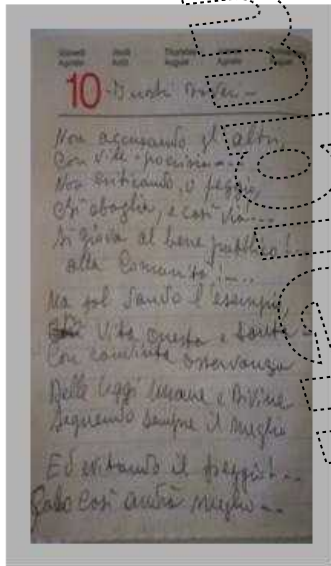 Giovedì Jeudi Thursday
Agosto Août August August
10 - I nostri doveri -
Non accusando gli altri,
Con vile ipocrisia ---
Non criticando, o peggio,
Chi sbaglia, e così via! ---
Si giova al bene pubblico!
alla Comunità! ---
Ma sol dando l'esempio,
Vita onesta e santa -
Con convinta osservanza
Delle leggi Umane e Divine
Seguendo sempre il meglio
Ed evitando il peggio! --
Solo così andrà meglio --